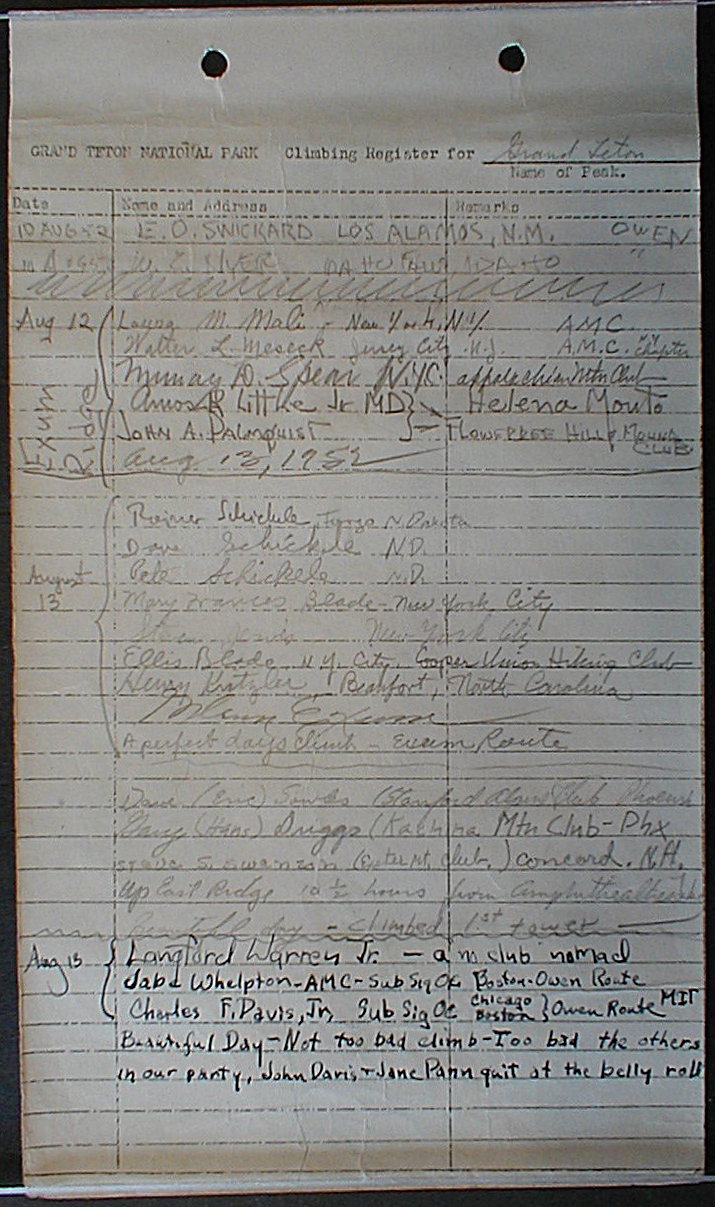 GRAND TETON NATIONAL PARK Climbing Register for Grand Teton
Name of Peak.
Date Name and Address Remarks
10 AUG 52 E. O. SWICKARD LOS ALAMOS, N.M. OWEN
IDAHO FALLS, IDAHO "
Aug 12 M. Mali - New York, N.Y. A.M.C.
Walter L. Meseck Jersey City N.J. A.M.C. N.Y. Chapter
Murray D. Spear N.Y.C. Appalachian Mtn Club
Exum Ridge
Amos R Little Jr MD Helena Monto
JOHN A. PALMQUIST FLOWERREE HILL & MOUND CLUB
Aug. 13, 1952
Rainer Schickele, Fargo N. Dakota
Dave Schickele N.D.
August 13
Pete Schickele N.D.
Mary Frances Blade - New York City
New York City
Ellis Blade N.Y. City. Cooper Union Hiking Club
Henry Beaufort, North Carolina
Glenn Exum
A perfect days climb - Exum Route
Dave (Eric) (Stanford Alpine Club
(Hans) Driggs (Kachina Mtn Club - Phx
Steve S. Swanson Club.) Concord. N.H.
Up East Ridge 10 1/2 hours from
day - climbed 1st tower
Aug 13 Langford Warren Jr. - a m club nomad
Whelpton - AMC - Sub Sig OC Boston - Owen Route
Charles F. Davis, Jr, Sub Sig OC Chicago Boston } Owen Route MIT
Beautiful Day - Not too bad climb - Too bad the others
in our party, John Davis + Jane Pann quit at the belly roll